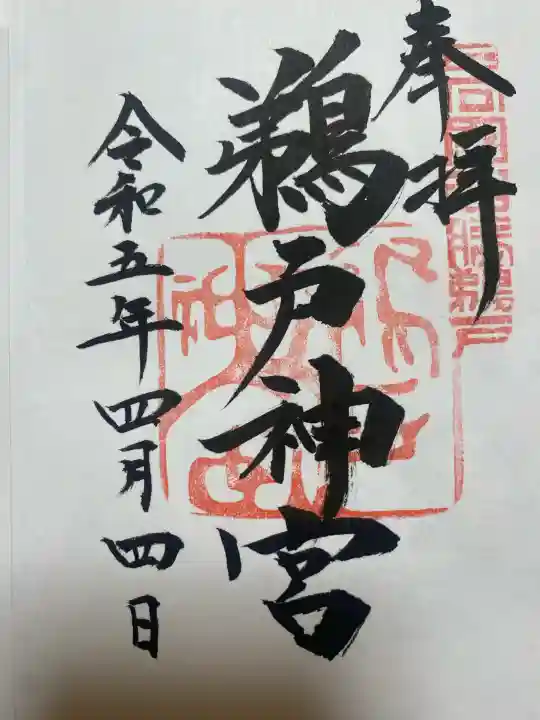 奉拝
鵜戸神宮
令和五年四月四日